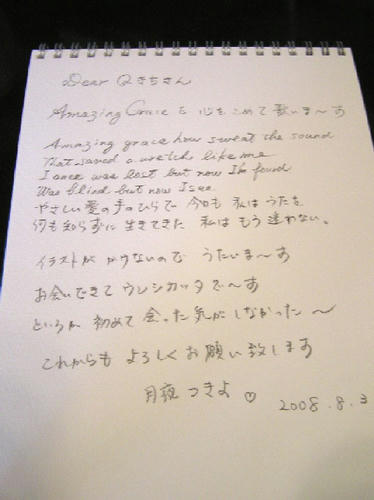 Dear Qきちさん
Amazing Graceを 心をこめて歌いま〜す
Amazing grace how sweat the sound
That saved a wretch like me
I once was lost but now I'm found
Was blind but now I see
やさしい愛の手のひらで 今日も 私はうたう
何も知らずに 生きてきた 私は もう 迷わない。
イラストが かけないので うたいま〜す
お会いできて ウレシカッタで〜す
というか 初めて 会った気がしなかった〜
これからも よろしくお願い致します
月夜 つきよ ♡
2008.8.3